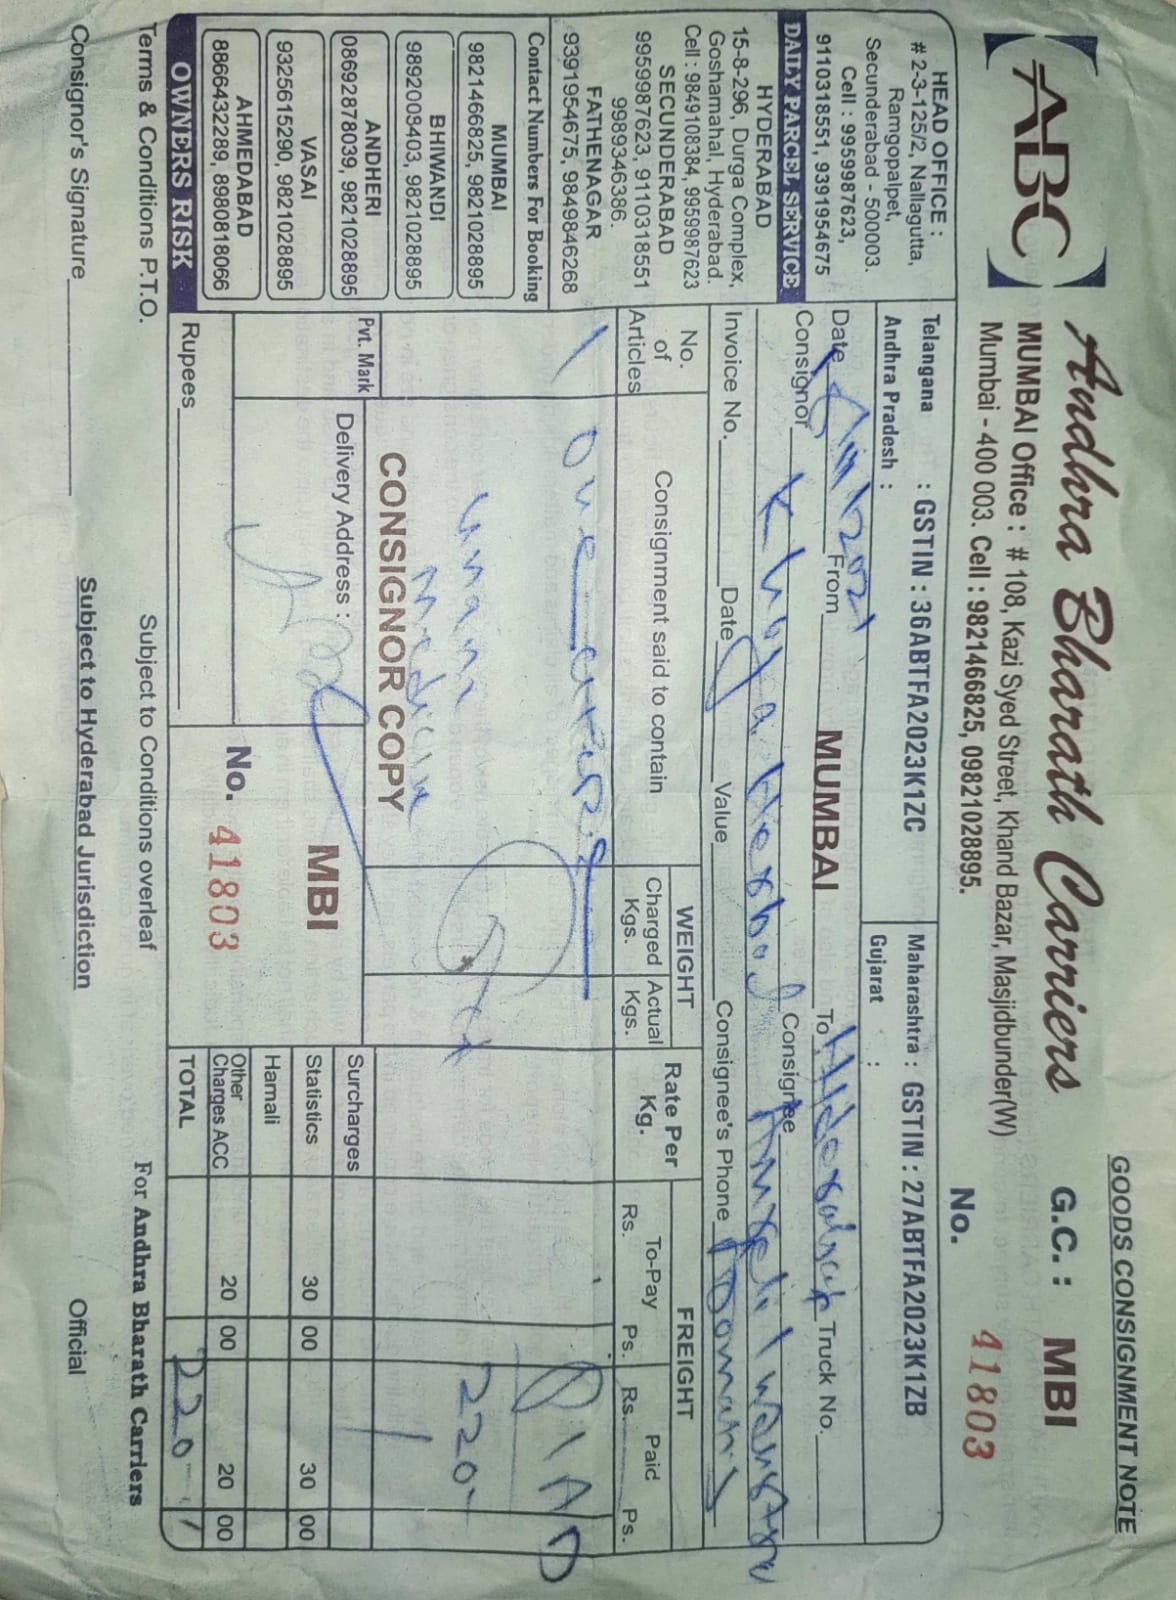 GOODS CONSIGNMENT NOTE
ABC
Andhra Bharath Carriers
G.C. : MBI
MUMBAI Office : # 108, Kazi Syed Street, Khand Bazar, Masjidbunder(W)
Mumbai - 400 003. Cell : 9821466825, 09821028895.
No. 41803
HEAD OFFICE :
# 2-3-125/2, Nallagutta,
Ramgopalpet,
Secunderabad - 500003.
Cell : 9959987623,
9110318551, 9391954675
DAILY PARCEL SERVICE
HYDERABAD
15-8-296, Durga Complex,
Goshamahal, Hyderabad.
Cell : 9849108384, 9959987623
SECUNDERABAD
9959987623, 9110318551
9989346386.
FATHENAGAR
9391954675, 9849846268
Contact Numbers For Booking
MUMBAI
9821466825, 9821028895
BHIWANDI
9892003403, 9821028895
ANDHERI
08692878039, 9821028895
VASAI
9325615290, 9821028895
AHMEDABAD
8866432289, 8980818066
OWNERS RISK
Telangana : GSTIN : 36ABTFA2023K1ZC
Andhra Pradesh :
Maharashtra : GSTIN : 27ABTFA2023K1ZB
Gujarat :
Date 2021 From MUMBAI To Truck No.
Consignor Khoja Herbal Consignee
Invoice No. Date Value Consignee's Phone
No. of Articles
Consignment said to contain
WEIGHT
Charged Kgs.
Actual Kgs.
Rate Per Kg.
FREIGHT
To-Pay
Rs. Ps.
Paid
Rs. Ps.
1 One
PIAD
Unani
Medicine
220
CONSIGNOR COPY
Pvt. Mark
Delivery Address :
MBI
No. 41803
Rupees
Surcharges
Statistics 30 00 30 00
Hamali
Other Charges ACC 20 00 20 00
TOTAL 220
Terms & Conditions P.T.O.
Subject to Conditions overleaf
For Andhra Bharath Carriers
Consignor's Signature
Subject to Hyderabad Jurisdiction
Official